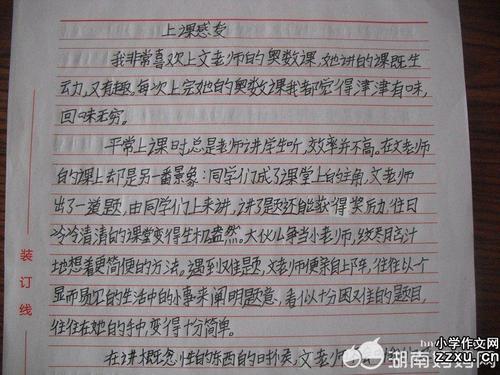 上课感受
我非常喜欢上文老师的奥数课,她讲的课既生
动,又有趣,每次上完她的奥数课我都觉得津津有味,
回味无穷。
平常上课时总是老师讲学生听,效率并不高。在文老师
的课上却是另一番景象:同学们成了课堂上的主角,文老师
出了一道题,由同学们上来讲,讲了题还能获得奖励,往日
冷冷清清的课堂变得生机盎然。大伙儿争当小老师,绞尽脑汁
地想着更简便的方法。遇到难住题,文老师便亲自上阵,往往以一个
显而易见的生活中的小事来阐明题意,看似十分困难的题目,
往往在她的手中变得十分简单。
在讲概念性的东西的时候,文老师
装订线
湖南妈妈网
小学作文网
zzxu.cn